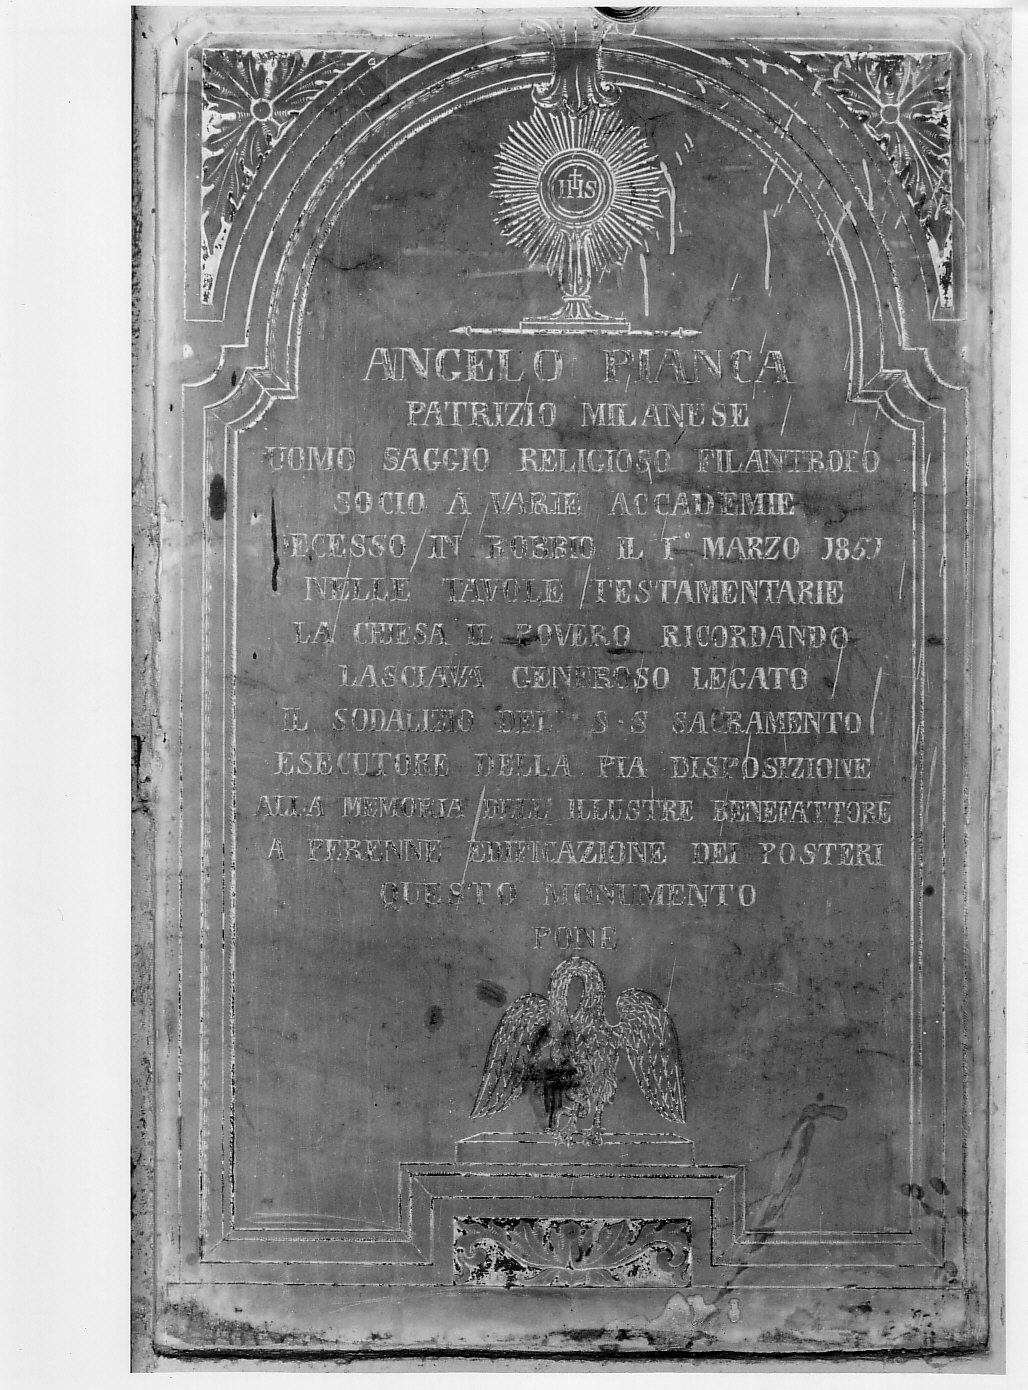 IHS
ANGELO PIANCA
PATRIZIO MILANESE
UOMO SAGGIO RELIGIOSO FILANTROPO
SOCIO A VARIE ACCADEMIE
DECESSO IN ROBBIO IL 1° MARZO 1851
NELLE TAVOLE TESTAMENTARIE
LA CHIESA IL POVERO RICORDANDO
LASCIAVA GENEROSO LEGATO
IL SODALIZIO DEL S.S SACRAMENTO
ESECUTORE DELLA PIA DISPOSIZIONE
ALLA MEMORIA DELL' ILLUSTRE BENEFATTORE
A PERENNE EDIFICAZIONE DEI POSTERI
QUESTO MONUMENTO
PONE